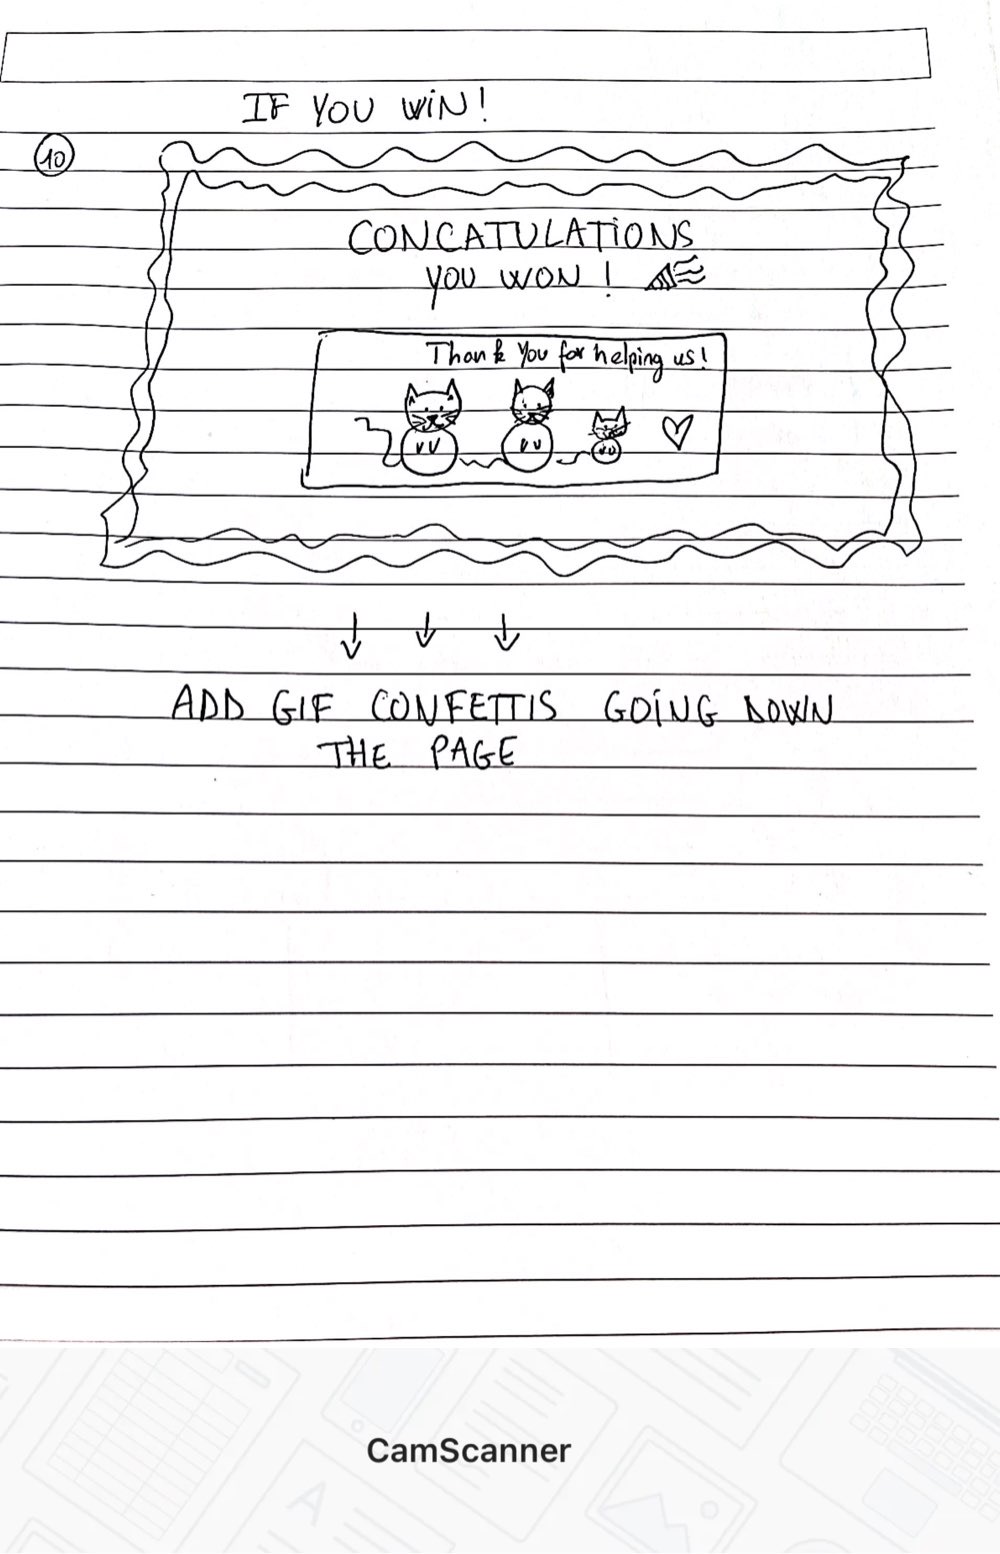 IF YOU WIN!
10
CONCATULATIONS
YOU WON!
Thank You for helping us!
ADD GIF CONFETTIS GOING DOWN
THE PAGE
CamScanner